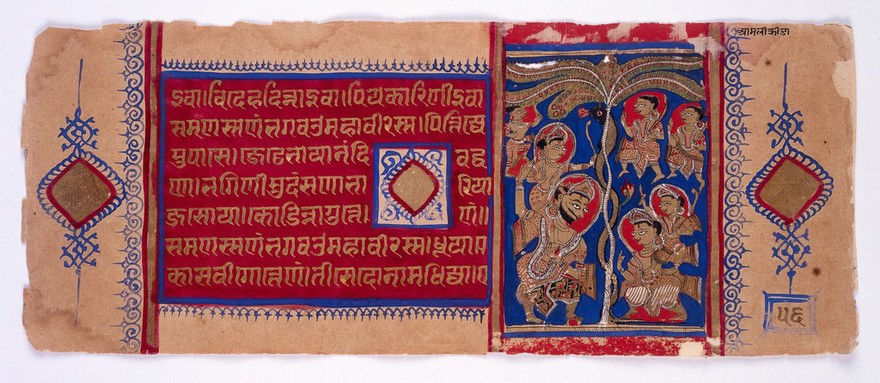 आमलीक्रीडा
इवा।विदेहदिन्नाइवा।पियकारिणीइवा
समणस्सणंभगवउमहावीरस्स।पित्तिज्जे
सुपासे।जेट्ठेभायानंदि वद्ध
णेभगिणीसुदंसणाभा रिया
जसोया।कोडिन्नागुत्ते णं॥
समणस्सणंभगवउमहावीरस्स।धूया
कासवीगोत्तेणं।तीसेदोनामधिज्जा।ए
५६